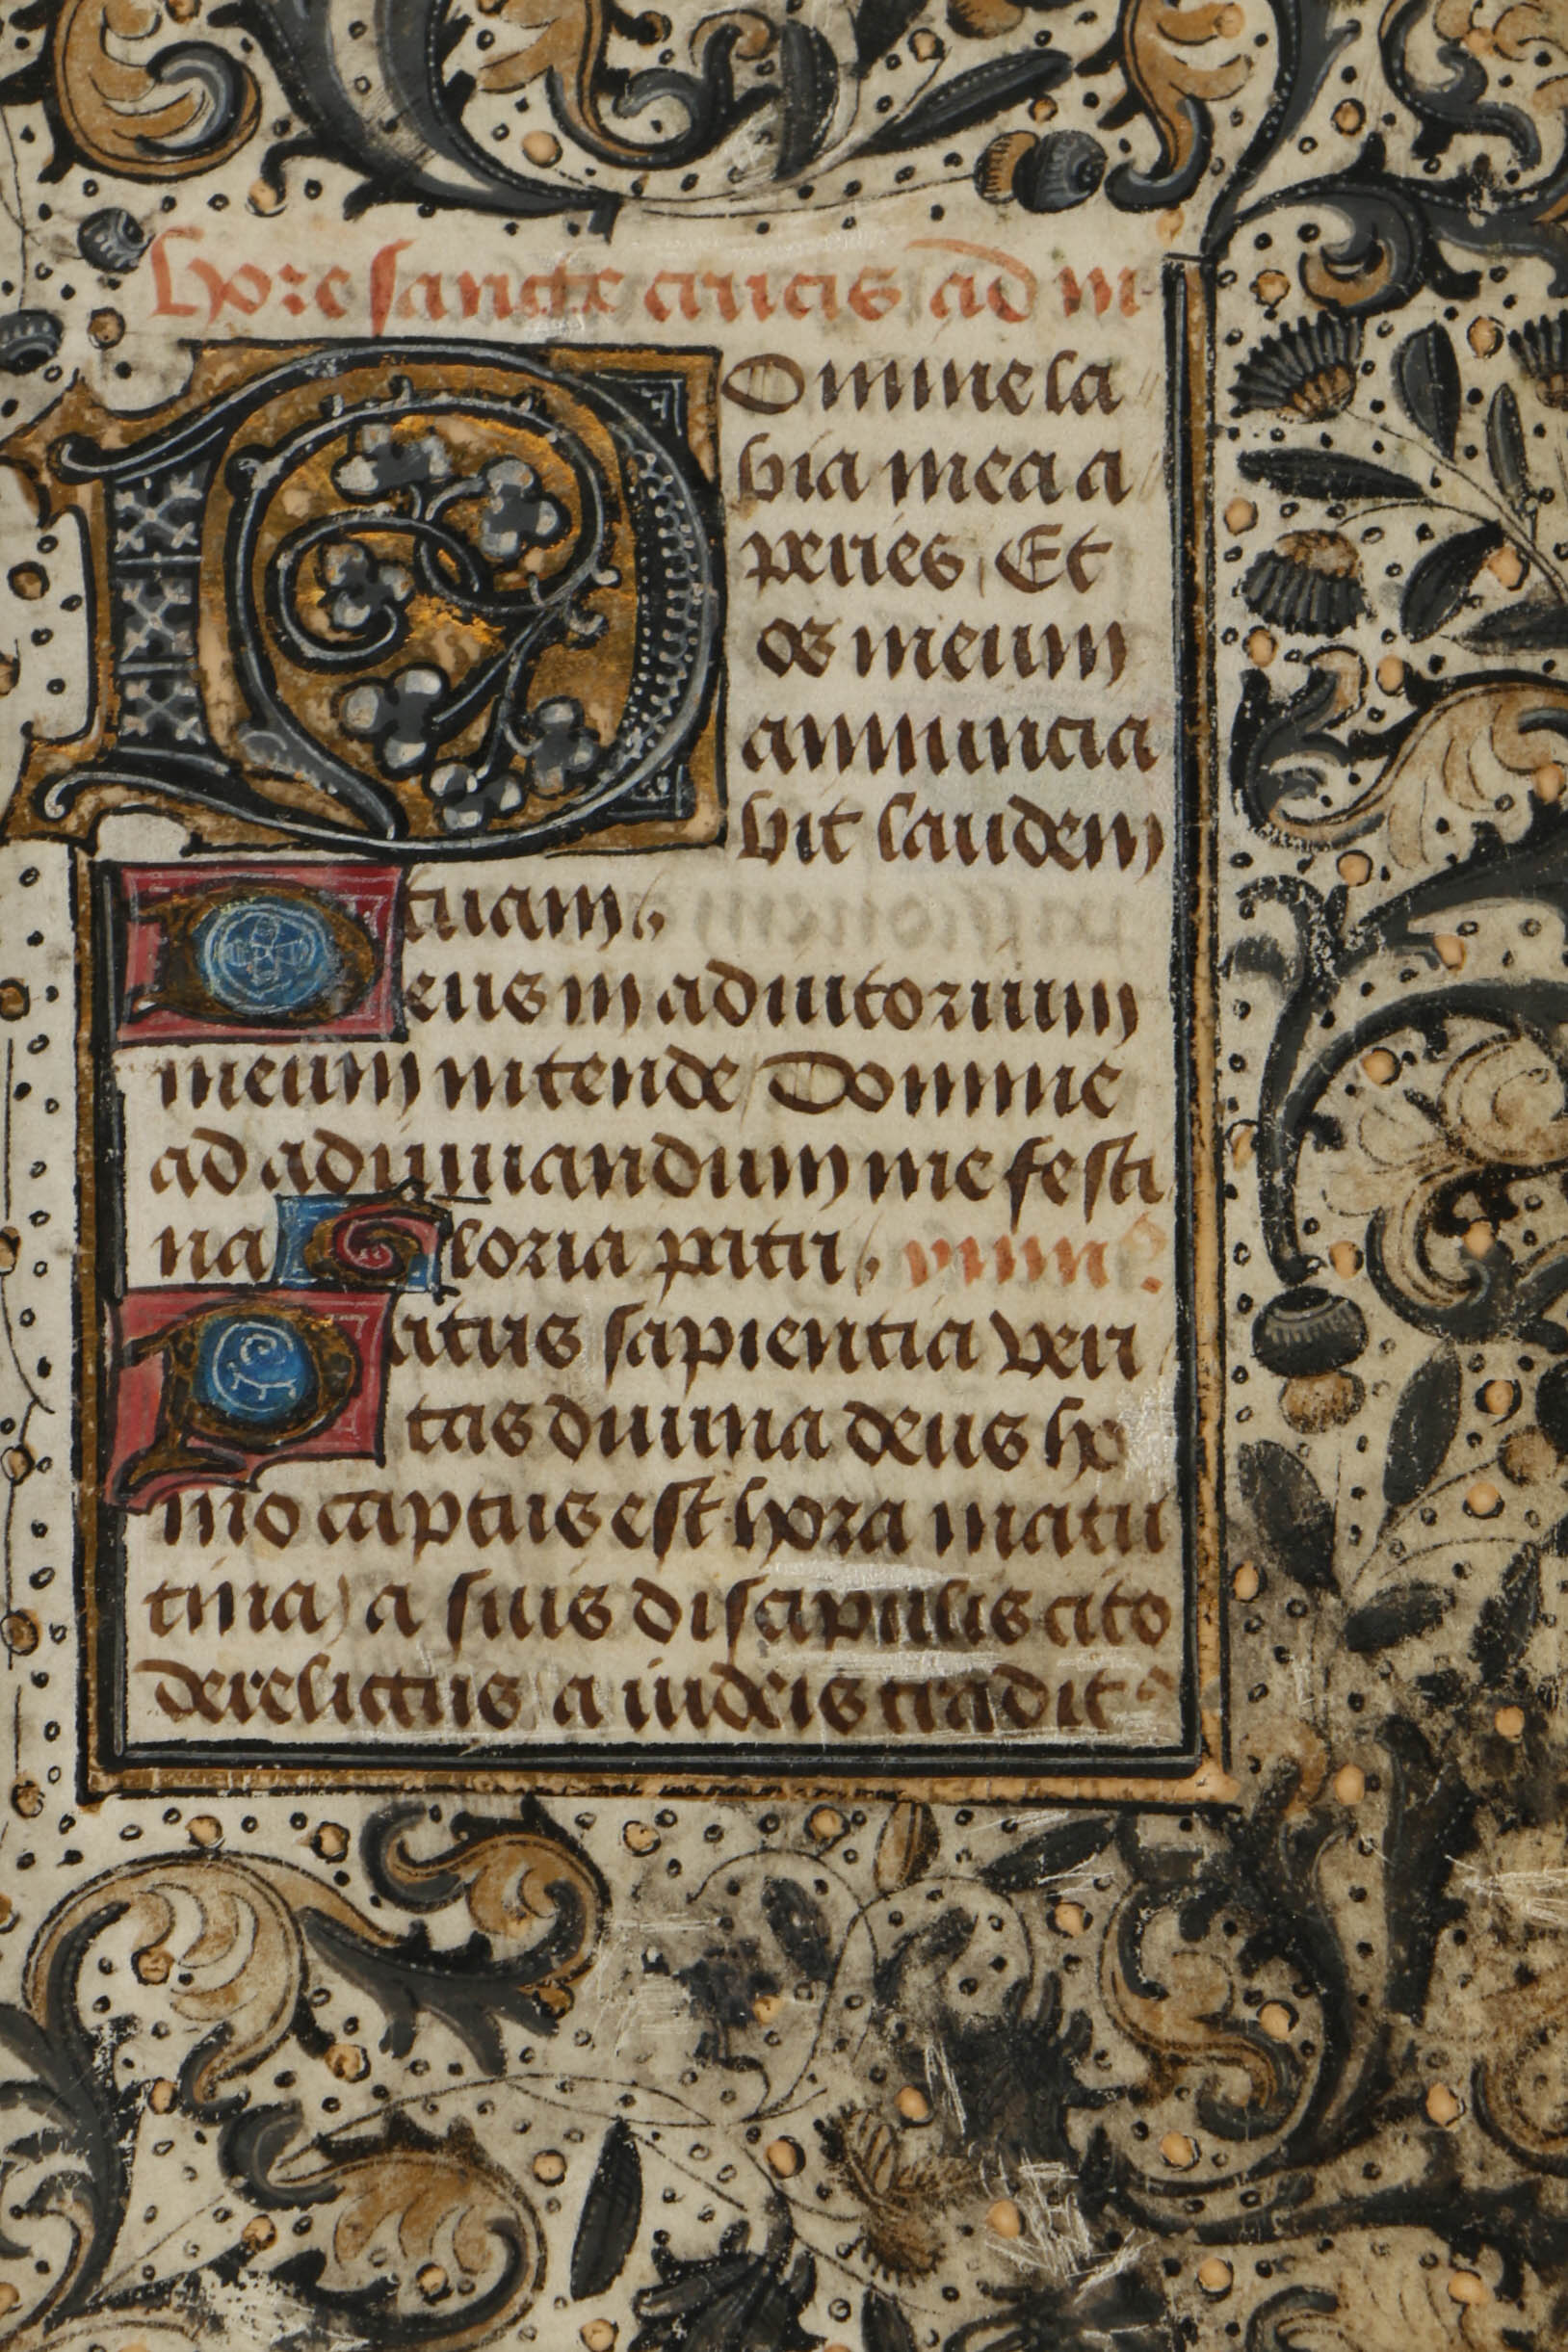 hore sancte crucis ad m
Domine la
bia mea a
peries, Et
os meum
annuncia
bit laudem
tuam.
Deus in adiutorium
meum intende Domine
ad adiuuandum me festi
na Gloria patri.
Patris sapientia veri
tas diuina deus ho
mo captus est hora matu
tina a suis discipulis cito
derelictus a iudeis tradit